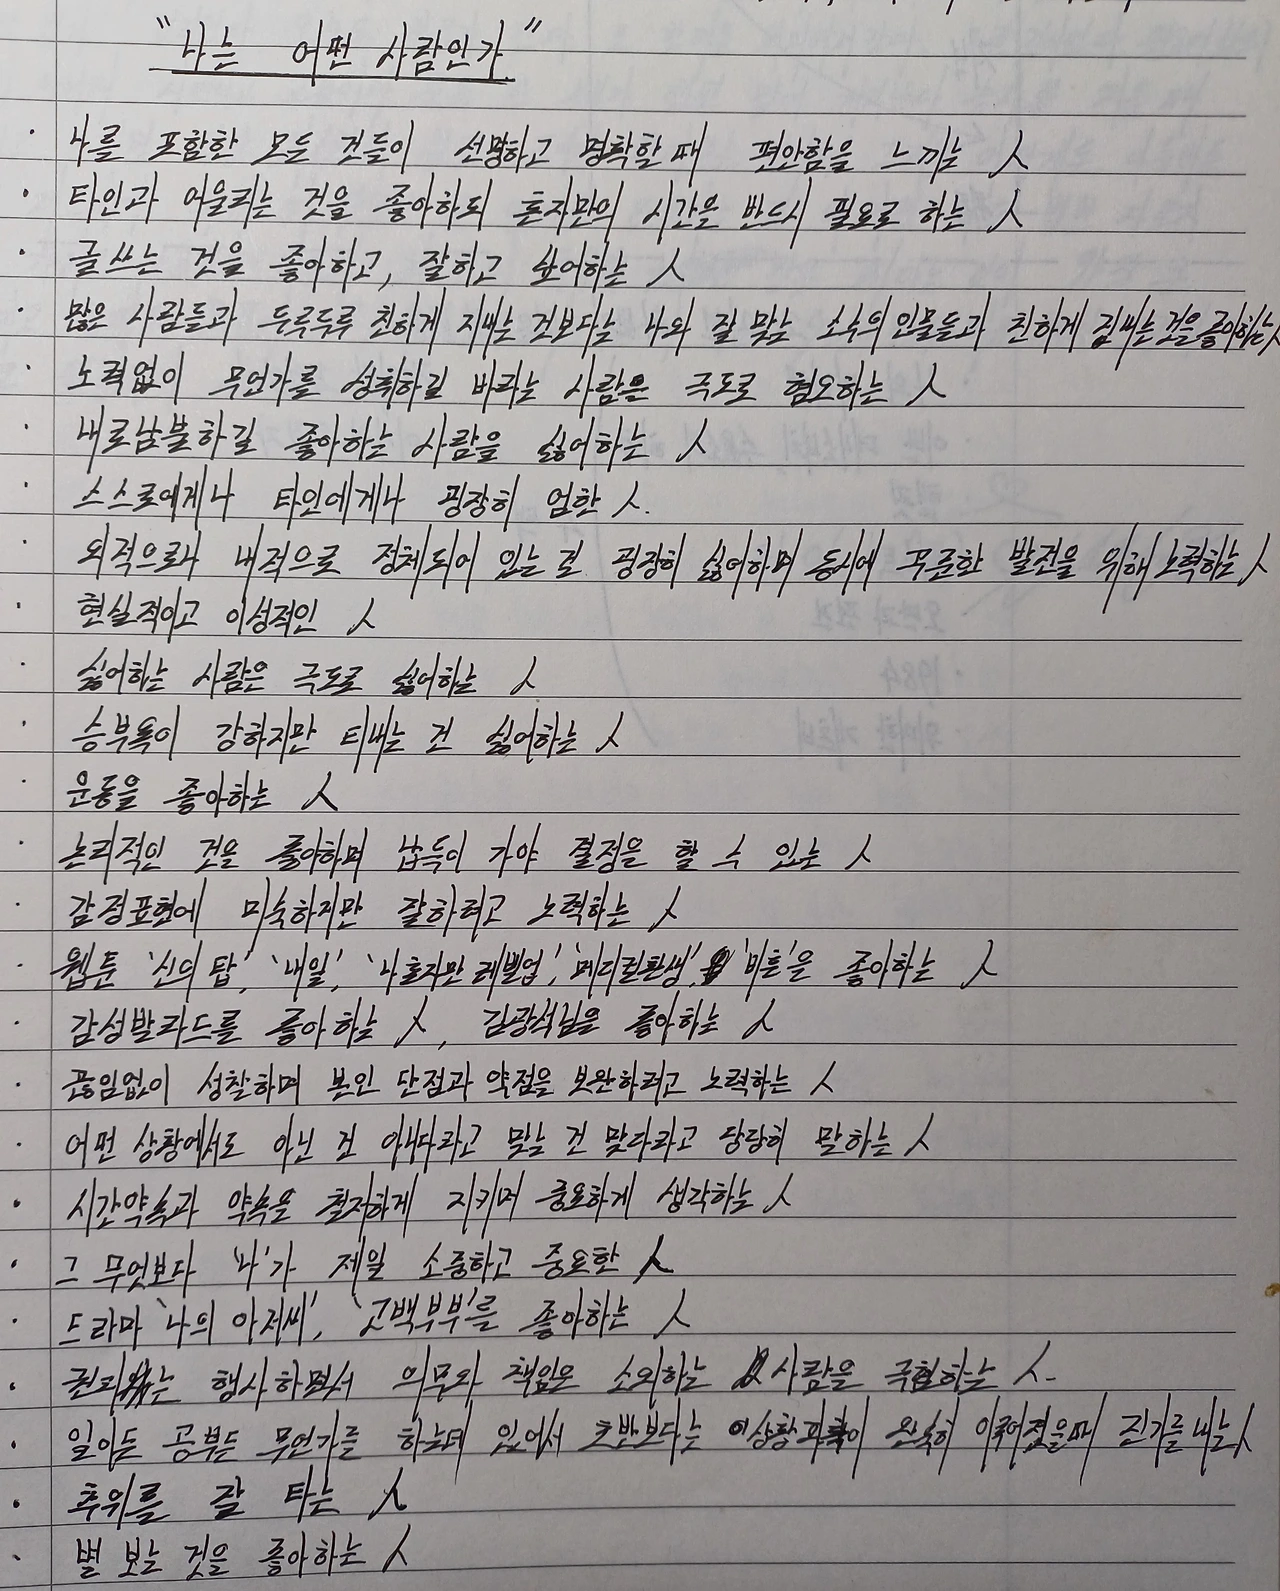 "나는 어떤 사람인가"
· 나를 포함한 모든 것들이 선명하고 명확할 때 편안함을 느끼는 人
· 타인과 어울리는 것을 좋아하되 혼자만의 시간을 반드시 필요로 하는 人
· 글쓰는 것을 좋아하고, 잘하고 싶어하는 人
· 많은 사람들과 두루두루 친하게 지내는 것보다는 나와 잘 맞는 소수의 인물들과 친하게 지내는 것을 좋아하는 人
· 노력없이 무언가를 성취하길 바라는 사람을 극도로 혐오하는 人
· 내로남불하길 좋아하는 사람을 싫어하는 人
· 스스로에게나 타인에게나 굉장히 엄한 人.
· 외적으로나 내적으로 정체되어 있는 걸 굉장히 싫어하며 동시에 꾸준한 발전을 위해 노력하는 人
· 현실적이고 이성적인 人
· 싫어하는 사람은 극도로 싫어하는 人
· 승부욕이 강하지만 티내는 건 싫어하는 人
· 운동을 좋아하는 人
· 논리적인 것을 좋아하며 납득이 가야 결정을 할 수 있는 人
· 감정표현에 미숙하지만 잘하려고 노력하는 人
· 웹툰 '신의 탑', '내일', '나 혼자만 레벨업', '메디컬환생', '비흔'을 좋아하는 人
· 감성발라드를 좋아하는 人, 김광석님을 좋아하는 人
· 끊임없이 성찰하며 본인 단점과 약점을 보완하려고 노력하는 人
· 어떤 상황에서도 아닌 건 아니다라고 맞는 건 맞다라고 당당히 말하는 人
· 시간약속과 약속을 철저하게 지키며 중요하게 생각하는 人
· 그 무엇보다 '나'가 제일 소중하고 중요한 人
· 드라마 '나의 아저씨', '고백부부'를 좋아하는 人
· 권리는 행사하면서 의무와 책임은 소외하는 사람을 극혐하는 人.
· 일이든 공부든 무언가를 하는데 있어서 초반보다는 상황파악이 완숙히 이루어졌을때 진가를 내는 人
· 추위를 잘 타는 人
· 별 보는 것을 좋아하는 人